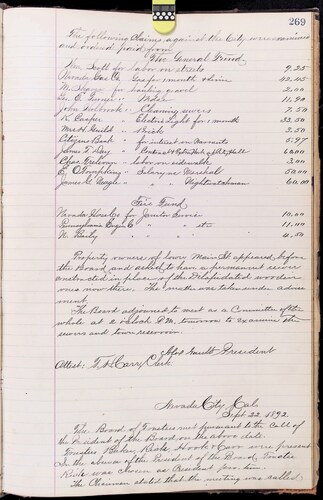 269
The following Claims against the City were examined
and ordered paid from
The General Fund
Wm Scott for labor on streets 9.25
Nevada Gas Co Gas for month 42.65
for hauling gravel 2.00
Geo E. " 11.90
John " Cleaning sewers 7.50
K. Casper " Electric Light for month 32.50
Mrs H. Guild " 2.50
Citizens Bank " for interest on Warrants 5.97
James T. " 5.00
Chas " labor on sidewalk 3.00
E. O. Tompkins " Salary as Marshal 50.00
James G. " " Nightwatchman 60.00
Fire Fund
Nevada Hose Co for Janitor Service 10.00
Pennsylvania Engine Co " " " 11.00
K. Baily " " 4.50
Property owners of lower Main St appeared before
the Board and asked to have a permanent sewer
constructed in place of the delapidated wooden
ones now there. The matter was taken under advise
ment.
The Board adjourned to meet as a Committee of the
whole at 2 o'clock P.M. tomorrow to examine the
sewers and town reservoir.
President
Attest: T. H. Carr, Clerk
Nevada City, Cala
Sept 22, 1892.
The Board of Trustees met pursuant to the Call of
the President of the Board, on the above date.
Trustees Baker, Rich, Hook & Carr were present
In the absence of the President of the Board, Trustee
Rich was chosen as President pro. tem.
The Chairman stated that the meeting was called